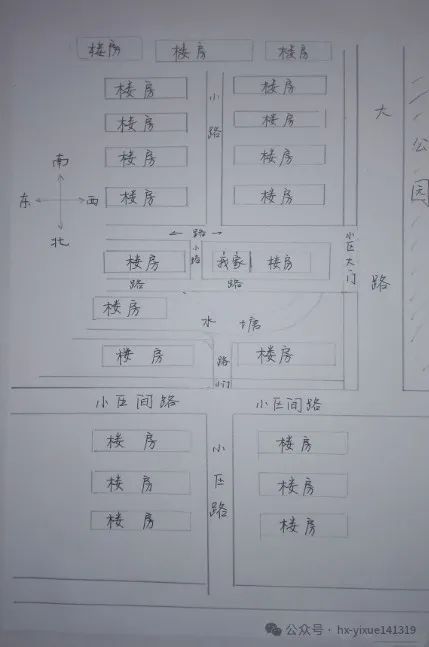 楼房 楼房 楼房
楼房 楼房
小路
大
楼房 楼房
公园
楼房 楼房
南
东 西
北
楼房 楼房
← 路 →
小区大门
小路
楼房 我家 楼房
路 路
路
楼房
水塘
楼房 路 楼房
小门
小区间路 小区间路
楼房 楼房
小区路
楼房 楼房
楼房 楼房
公众号 · hx-yixue141319